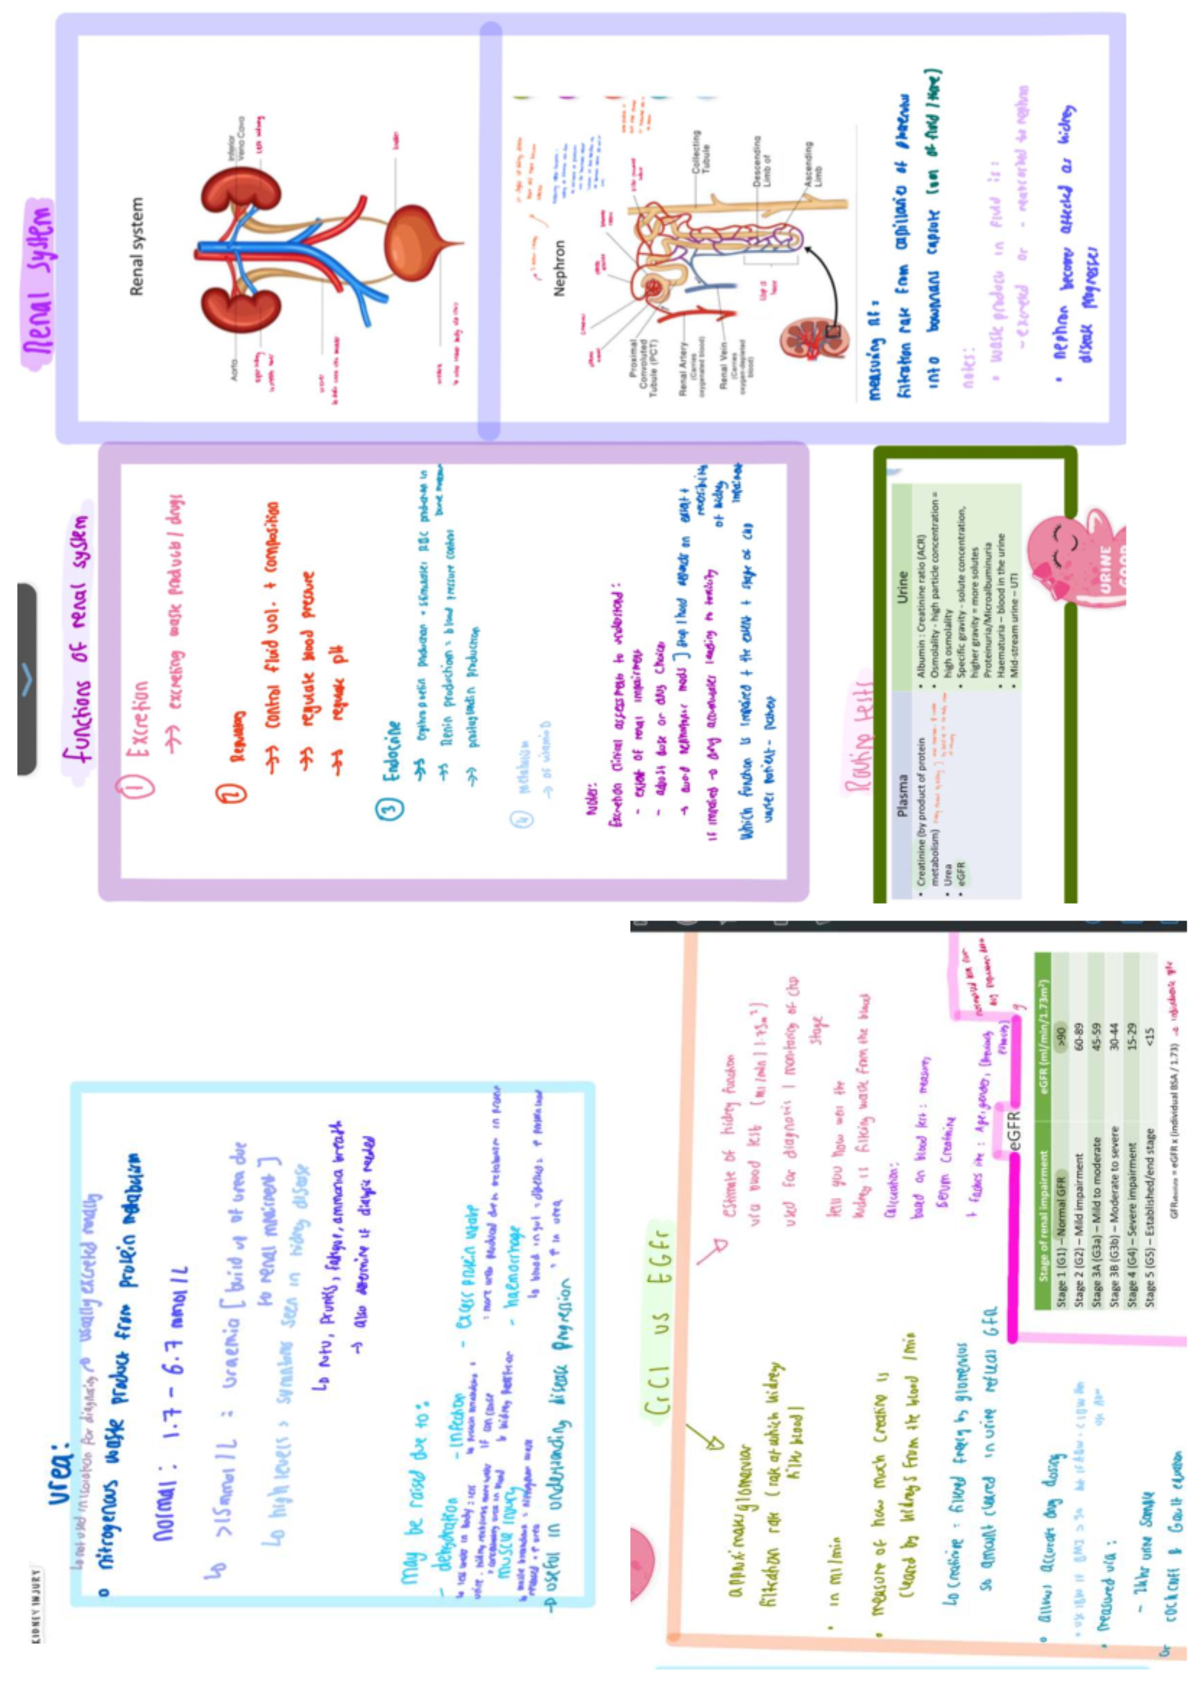 Renal system
Renal system
Aorta
Inferior
Vena Cava
left kidney
bladder
ureter
urethra
Nephron
Proximal
Convoluted
Tubule (PCT)
Renal Artery
(Carries
oxygenated blood)
Renal Vein
(Carries
oxygen-depleted
blood)
Collecting
Tubule
Descending
Limb of
Ascending
Limb
measuring RF:
filtration rate from capillaries of glomerulus
into bowmans capsule (vol of fluid / time)
notes:
• waste product in fluid is:
- excreted or - reabsorbed to nephron
• nephron become affected as kidney
disease progresses
functions of renal system
① Excretion
→→ excreting waste products / drugs
② Regulatory
→→ control fluid vol. + composition
→→ regulate blood pressure
→→ regulate pH
③ Endocrine
→→ erythropoietin production = stimulates RBC production in
bone marrow
→→ Renin production = blood pressure control
→→ prostaglandin production
④ metabolism
→ of vitamin D
Notes:
Excretion clinical assessment to understand:
- extent of renal impairment
- adjust dose or drug choice
→ avoid nephrotoxic meds ] stop / hold depends on extent +
reversibility
of kidney
impairment
if impaired → drug accumulates leading to toxicity
Which function is impaired + the extent + stage of CKD
varies patient - patient
Routine tests
Plasma
Urine
• Creatinine (by product of protein
metabolism)
• Urea
• eGFR
• Albumin : Creatinine ratio (ACR)
• Osmolality - high particle concentration =
high osmolality
• Specific gravity - solute concentration,
higher gravity = more solutes
Proteinuria/Microalbuminuria
• Haematuria – blood in the urine
• Mid-stream urine – UTI
URINE
GOOD
KIDNEY INJURY
urea:
↳ not used in isolation for diagnosis → usually excreted renally
• nitrogenous waste product from protein metabolism
normal: 1.7 - 6.7 mmol/L
↳ >15mmol/L = uraemia [build up of urea due
to renal impairment]
↳ high levels > symptoms seen in kidney disease
↳ N+V, pruritis, fatigue, ammonia breath
→ also determine if dialysis needed
may be raised due to:
- dehydration
↳ less water in body = less
urine
- infection
- excess protein intake
- haemorrhage
muscle injury
→ useful in understanding disease progression
CrCl vs EGFr
approximates glomerular
filtration rate (rate at which kidney
filts blood)
• in ml/min
• measure of how much creatine is
cleared by kidneys from the blood /min
↳ creatinine = filtered freely by glomerulus
so amount cleared in urine reflects GFR
• allows accurate drug dosing
• measured via:
- 24hr urine sample
or cockcroft & Gault equation
estimate of kidney function
via blood test (ml/min/1.73m²)
used for diagnosis / monitoring of CKD
stage
tell you how well the
kidney is filtering waste from the blood
calculation:
based on blood test: measures
serum creatinine
+ factors like: Age, gender, (previously
ethnicity)
eGFR
Stage of renal impairment
eGFR (ml/min/1.73m²)
Stage 1 (G1) – Normal GFR
>90
Stage 2 (G2) – Mild impairment
60-89
Stage 3A (G3a) – Mild to moderate
45-59
Stage 3B (G3b) – Moderate to severe
30-44
Stage 4 (G4) – Severe impairment
15-29
Stage 5 (G5) – Established/end stage
<15
GFRabsolute = eGFR x (individual BSA / 1.73)